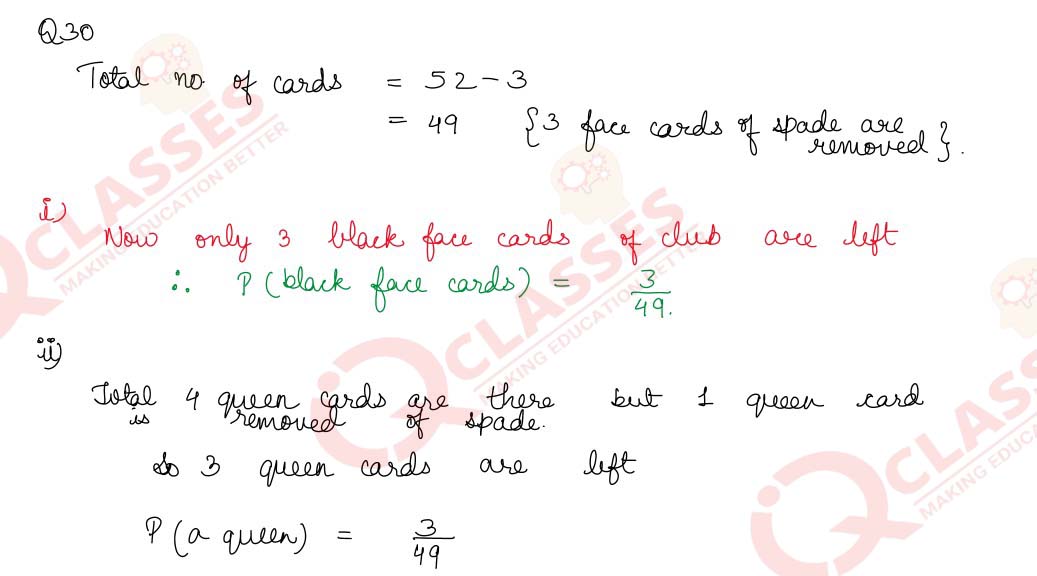 Q30
Total no. of cards = 52 - 3
= 49 {3 face cards of spade are
removed}.
i)
Now only 3 black face cards of club are left
∴ P(black face cards) = 3/49.
ii)
Total 4 queen cards are there but 1 queen card
is removed of spade.
So 3 queen cards are left
P(a queen) = 3/49
iQCLASSES
MAKING EDUCATION BETTER
iQCLASSES
MAKING EDUCATION BETTER
iQCLASSES
MAKING EDUCA